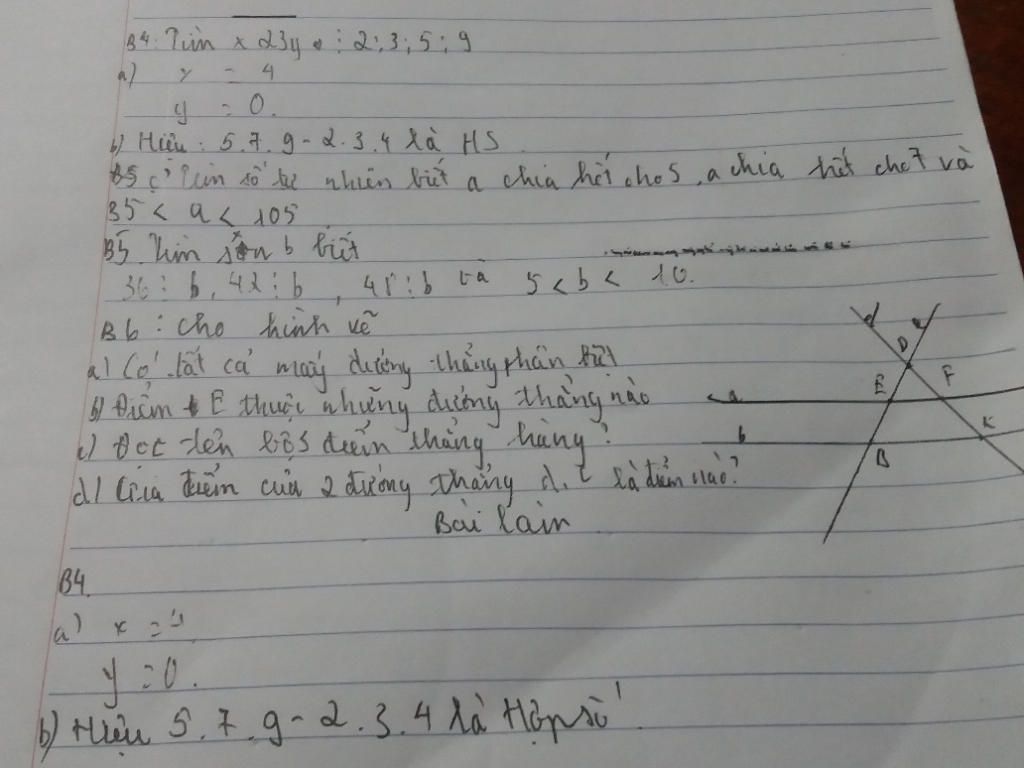 B4: Tìm x 23y ⋮ 2; 3; 5; 9
a) x = 4
y = 0.
b) Hiệu: 5.7.9-2.3.4 là HS
B5 c) Tìm số tự nhiên biết a chia hết cho 5, a chia hết cho 7 và
35 < a < 105
B5. Tìm số n b biết
36 ⋮ b, 42 ⋮ b, 48 ⋮ b và 5 < b < 10.
B6: Cho hình vẽ
a) Có tất cả mấy đường thẳng phân biệt
b) Điểm E thuộc những đường thẳng nào
c) Đọc tên bộ 3 điểm thẳng hàng?
d) Giao điểm của 2 đường thẳng d, c là điểm nào?
d c
D
E F
a
b K
B
Bài làm
B4.
a) x = 4
y = 0.
b) Hiệu 5.7.9-2.3.4 là Hợp số